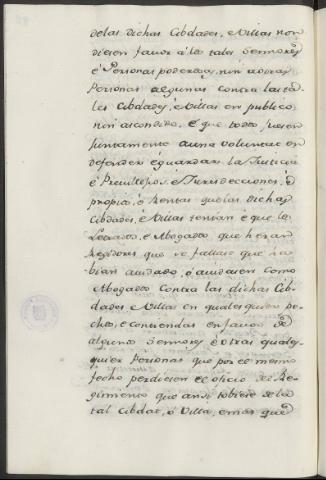 delas dichas Cibdades, é Villas non
diesen favor á los tales Sennores
é Personas poderosas, nin á otras
Personas algunas contra las ta-
les Cibdades, é Villas en publico
nin ascondido. E que todos fuesen
juntamente á una voluntat en
defender, é guardar la Justicia
é Previllejos, é Jurisdecciones, é
propios, é Rentas quelas dichas
Cibdades, é Villas tenian é que los
Letrados, é Abogados que heran
Regidores que se fallase que ha-
bian aiudado, ó aiudasen como
Abogados contra las dichas Cib-
dades, é Villas en qualesquier pe-
chos, é contiendas en favor de
algunos Sennores é otras quales-
quier Personas que por el mesmo
fecho perdiesen el oficio de Re-
gimiento que ansi tobiese dela
tal Cibdat, ó Villa, é mas que